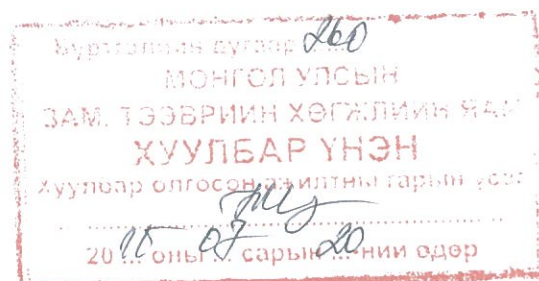 Бүртгэлийн дугаар 260
МОНГОЛ УЛСЫН
ЗАМ, ТЭЭВРИЙН ХӨГЖЛИЙН ЯАМ
ХУУЛБАР ҮНЭН
Хуулбар олгосон ажилтны гарын үсэг
20 15 оны 07 сарын 20-ний өдөр